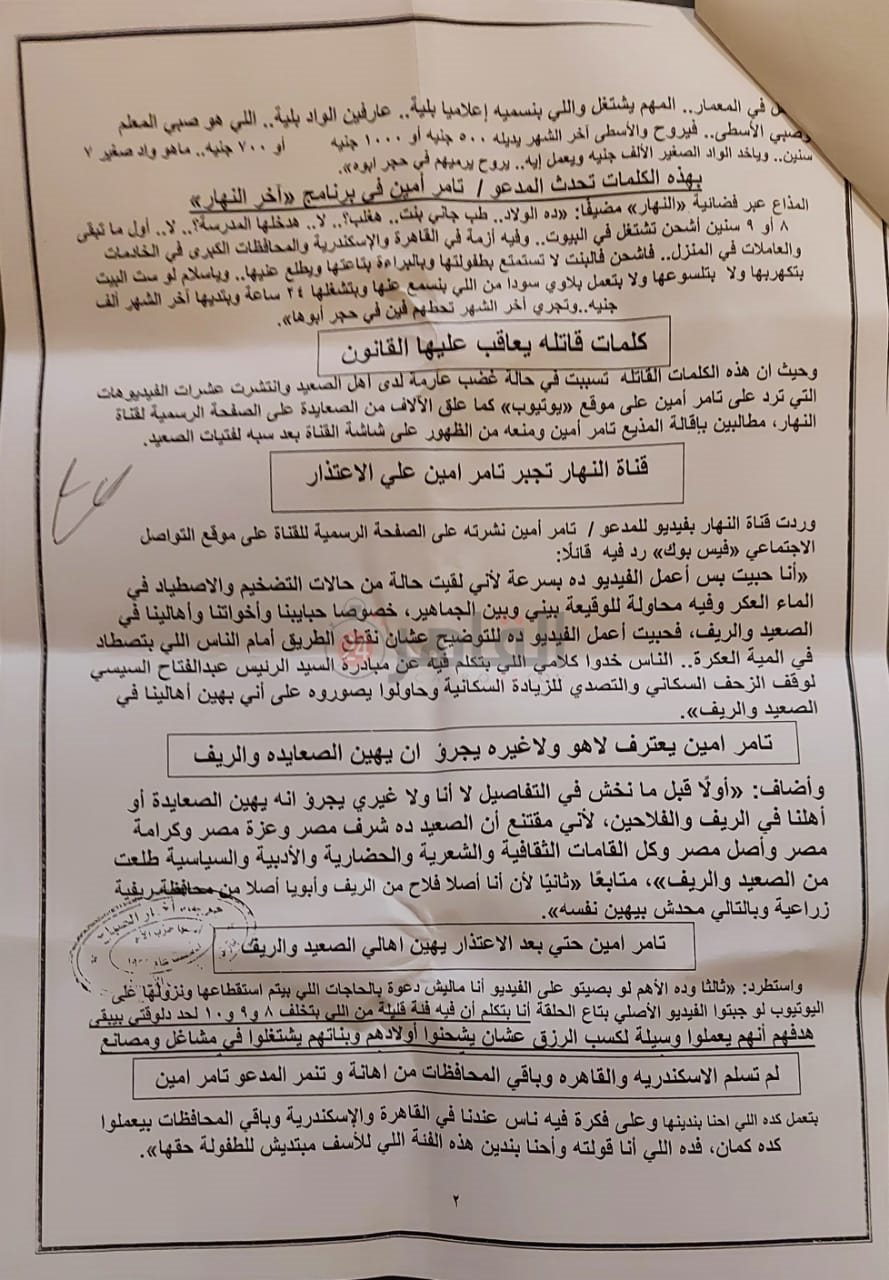 في المعمار.. المهم يشتغل واللي بنسميه إعلاميا بلية.. عارفين الواد بلية.. اللي هو صبي المعلم
وصبي الأسطى.. فيروح والأسطى آخر الشهر يديله ٥٠٠ جنيه أو ١٠٠٠ جنيه أو ٧٠٠ جنيه.. ماهو واد صغير ٧
سنين.. وياخد الواد الصغير الألف جنيه ويعمل إيه.. يروح يرميهم في حجر أبوه».
بهذه الكلمات تحدث المدعو / تامر أمين في برنامج «آخر النهار»
المذاع عبر فضائية «النهار» مضيفًا: «ده الولاد.. طب جاني بنت.. هغلب؟.. لا.. هدخلها المدرسة؟.. لا.. أول ما تبقى
٨ أو ٩ سنين أشحن تشتغل في البيوت.. وفيه أزمة في القاهرة والإسكندرية والمحافظات الكبرى في الخادمات
والعاملات في المنزل.. فاشحن فالبنت لا تستمتع بطفولتها وبالبراءة بتاعتها ويطلع عنيها.. وياسلام لو ست البيت
بتكهربها ولا بتلسوعها ولا بتعمل بلاوي سودا من اللي بنسمع عنها وبتشغلها ٢٤ ساعة وبتديها آخر الشهر ألف
جنيه..وتجري أخر الشهر تحطهم فين في حجر أبوها».
كلمات قاتله يعاقب عليها القانون
وحيث ان هذه الكلمات القاتله تسببت في حالة غضب عارمة لدى أهل الصعيد وانتشرت عشرات الفيديوهات
التي ترد على تامر أمين على موقع «يوتيوب» كما علق الآلاف من الصعايدة على الصفحة الرسمية لقناة
النهار، مطالبين بإقالة المذيع تامر أمين ومنعه من الظهور على شاشة القناة بعد سبه لفتيات الصعيد.
قناة النهار تجبر تامر امين علي الاعتذار
وردت قناة النهار بفيديو للمدعو / تامر أمين نشرته على الصفحة الرسمية للقناة على موقع التواصل
الاجتماعي «فيس بوك» رد فيه قائلًا:
«أنا حبيت بس أعمل الفيديو ده بسرعة لأني لقيت حالة من حالات التضخيم والاصطياد في
الماء العكر وفيه محاولة للوقيعة بيني وبين الجماهير، خصوصا حبايبنا وأخواتنا وأهالينا في
الصعيد والريف، فحبيت أعمل الفيديو ده للتوضيح عشان نقطع الطريق أمام الناس اللي بتصطاد
في المية العكرة.. الناس خدوا كلامي اللي بتكلم فيه عن مبادرة السيد الرئيس عبدالفتاح السيسي
لوقف الزحف السكاني والتصدي للزيادة السكانية وحاولوا يصوروه على أني بهين أهالينا في
الصعيد والريف».
تامر امين يعترف لاهو ولاغيره يجرؤ ان يهين الصعايده والريف
وأضاف: «أولًا قبل ما نخش في التفاصيل لا أنا ولا غيري يجرؤ انه يهين الصعايدة أو
أهلنا في الريف والفلاحين، لأني مقتنع أن الصعيد ده شرف مصر وعزة مصر وكرامة
مصر وأصل مصر وكل القامات الثقافية والشعرية والحضارية والأدبية والسياسية طلعت
من الصعيد والريف»، متابعًا «ثانيًا لأن أنا أصلا فلاح من الريف وأبويا أصلا من محافظة ريفية
زراعية وبالتالي محدش بيهين نفسه».
تامر امين حتي بعد الاعتذار يهين اهالي الصعيد والريف
واستطرد: «ثالثا وده الأهم لو بصيتو على الفيديو أنا ماليش دعوة بالحاجات اللي بيتم استقطاعها ونزولها على
اليوتيوب لو جبتوا الفيديو الأصلي بتاع الحلقة أنا بتكلم أن فيه فئة قليلة من اللي بتخلف ٨ و٩ و١٠ لحد دلوقتي بيبقى
هدفهم أنهم يعملوا وسيلة لكسب الرزق عشان يشحنوا أولادهم وبناتهم يشتغلوا في مشاغل ومصانع
لم تسلم الاسكندريه والقاهره وباقي المحافظات من اهانة و تنمر المدعو تامر امين
بتعمل كده اللي احنا بندينها وعلى فكرة فيه ناس عندنا في القاهرة والإسكندرية وباقي المحافظات بيعملوا
كده كمان، فده اللي أنا قولته وأحنا بندين هذه الفئة اللي للأسف مبتديش للطفولة حقها».
٢